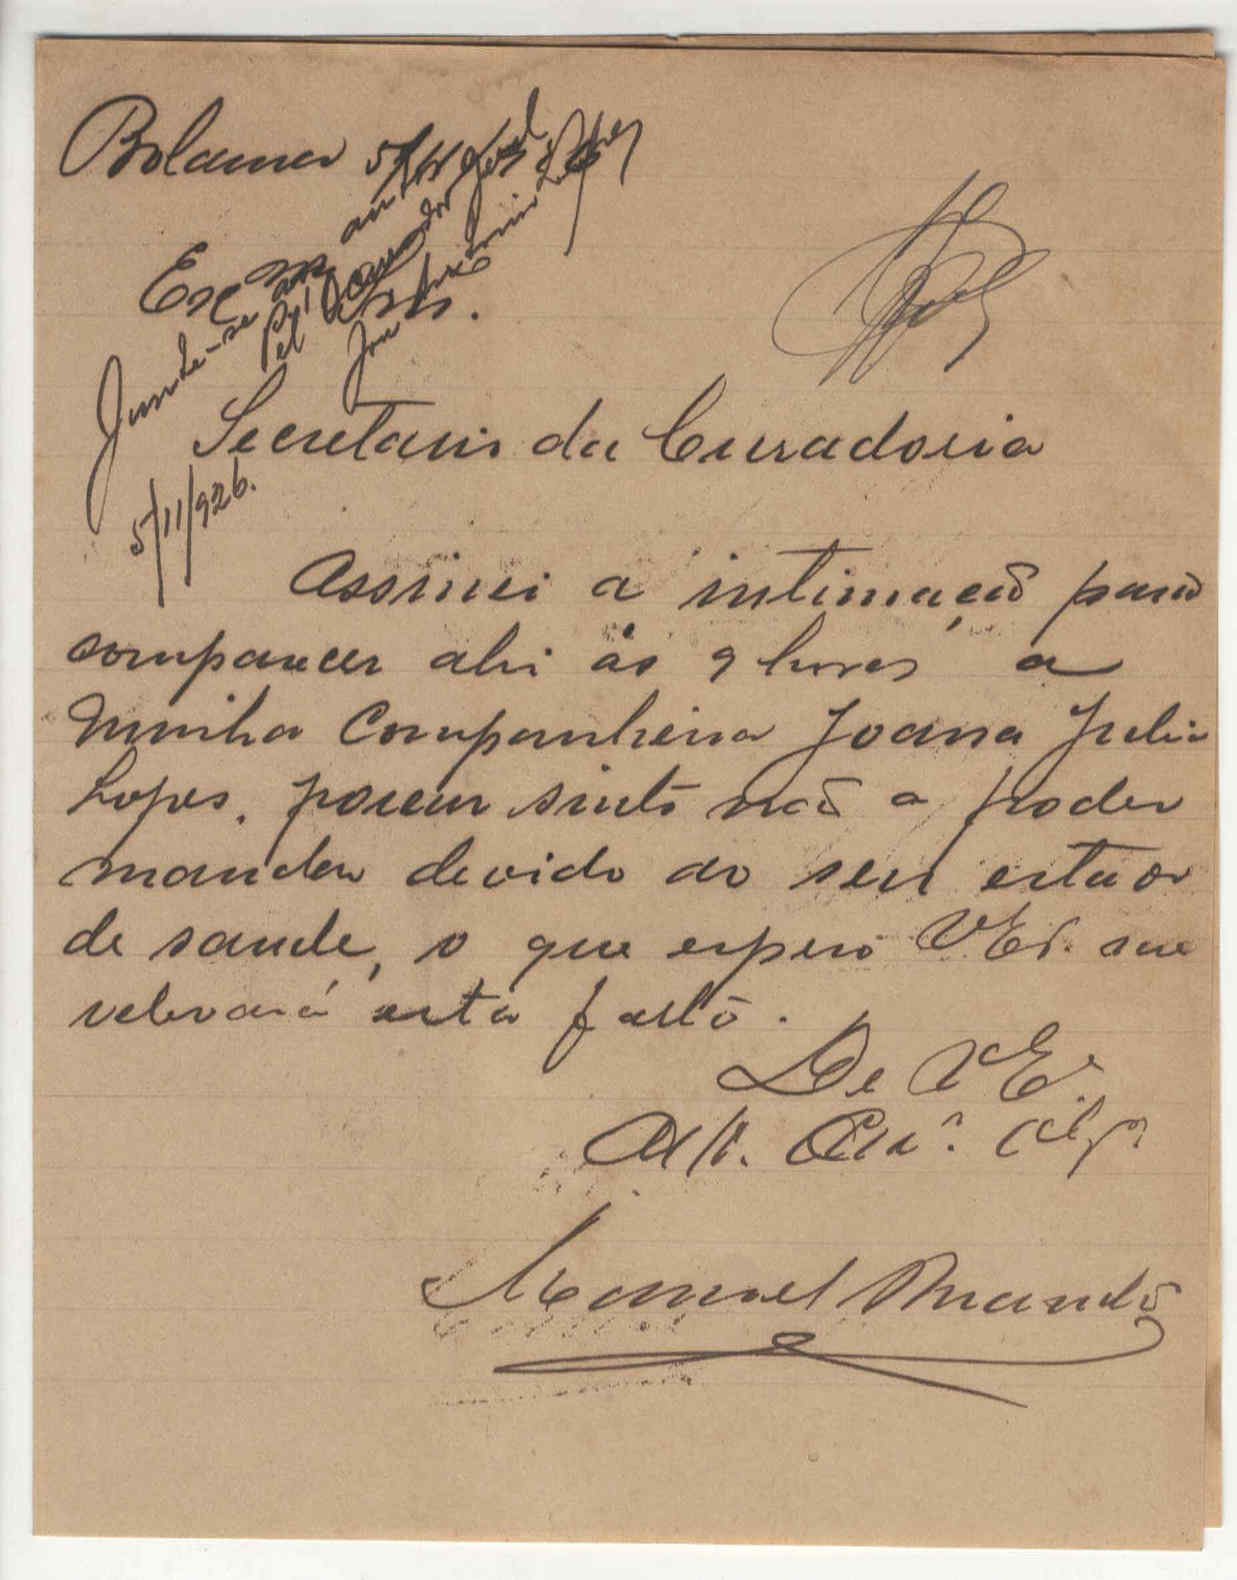 Bolama 5/11/926
Exmo Snr.
Junte-se aos autos
Pel' O Curador Geral
5/11/926.
Secretario da Curadoria
Assinei a intimação para
comparecer ahi ás 9 horas a
minha Companheira Joana Julia
Lopes, porem sinto não a poder
mandar devido ao seu estado
de saude, o que espero V Exª. me
relevará esta falta.
De V E.
Attº.
Manuel Brandão